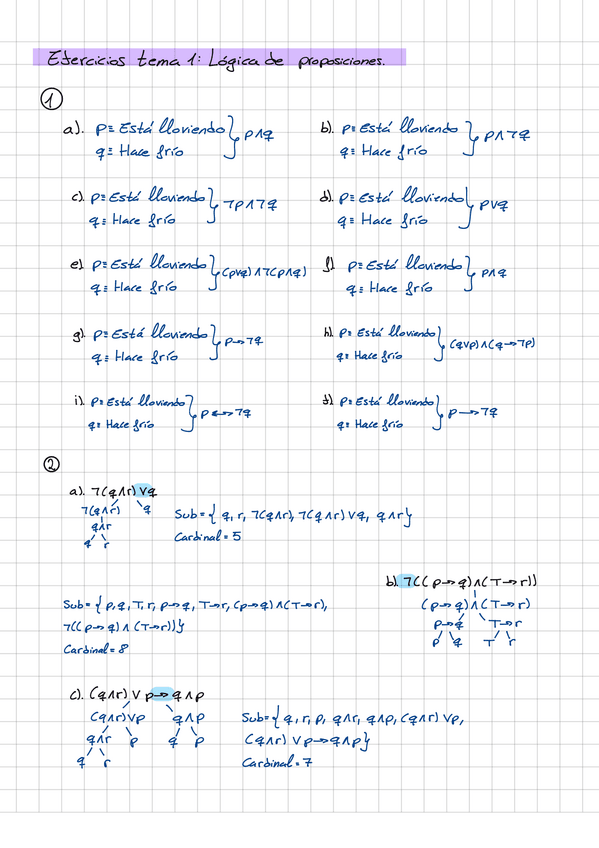 Ejercicios tema 1: Lógica de proposiciones.
①
a). p ≡ Está lloviendo } p∧q
q ≡ Hace frío
b). p ≡ Está lloviendo } p∧¬q
q ≡ Hace frío
c). p ≡ Está lloviendo } ¬p∧¬q
q ≡ Hace frío
d). p ≡ Está lloviendo } p∨q
q ≡ Hace frío
e) p ≡ Está lloviendo } (p∨q)∧¬(p∧q)
q ≡ Hace frío
f) p ≡ Está lloviendo } p∧q
q ≡ Hace frío
g). p ≡ Está lloviendo } p→¬q
q ≡ Hace frío
h). p ≡ Está lloviendo } (q∨p)∧(q→¬p)
q ≡ Hace frío
i). p ≡ Está lloviendo } p↔¬q
q ≡ Hace frío
j) p ≡ Está lloviendo } p→¬q
q ≡ Hace frío
②
a). ¬(q∧r)∨q
¬(q∧r) q
q∧r
q r
Sub = { q, r, ¬(q∧r), ¬(q∧r)∨q, q∧r}
Cardinal = 5
b). ¬((p→q)∧(T→r))
(p→q)∧(T→r)
p→q T→r
p q T r
Sub = { p, q, T, r, p→q, T→r, (p→q)∧(T→r),
¬((p→q)∧(T→r))}
Cardinal = 8
c). (q∧r)∨p→q∧p
(q∧r)∨p q∧p
q∧r p q p
q r
Sub = { q, r, p, q∧r, q∧p, (q∧r)∨p,
(q∧r)∨p→q∧p}
Cardinal = 7